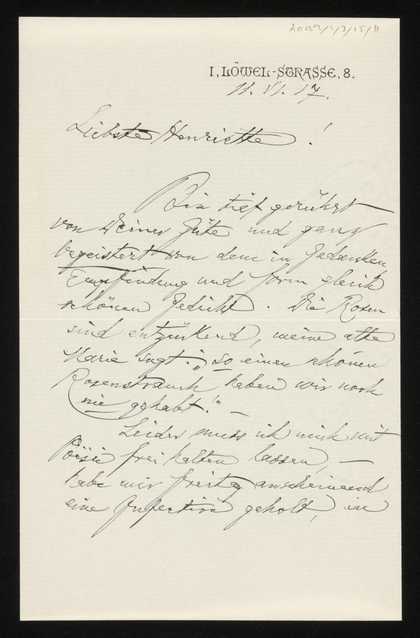 I, LÖWEL-STRASSE, 8.
11. VI. 17.
Liebste Henriette!
Bin tief gerührt
von Deiner Güte und ganz
begeistert von dem in Gedanken,
Empfindung und Form gleich
schönen Gedicht. Die Rosen
sind entzückend, meine alte
Marie sagt: „so einen schönen
Rosenstrauch haben wir noch
nie gehabt." –
Leider muss ich mich mit
Poesie frei halten lassen, –
habe mir Freitag anscheinend
eine Infection geholt, im